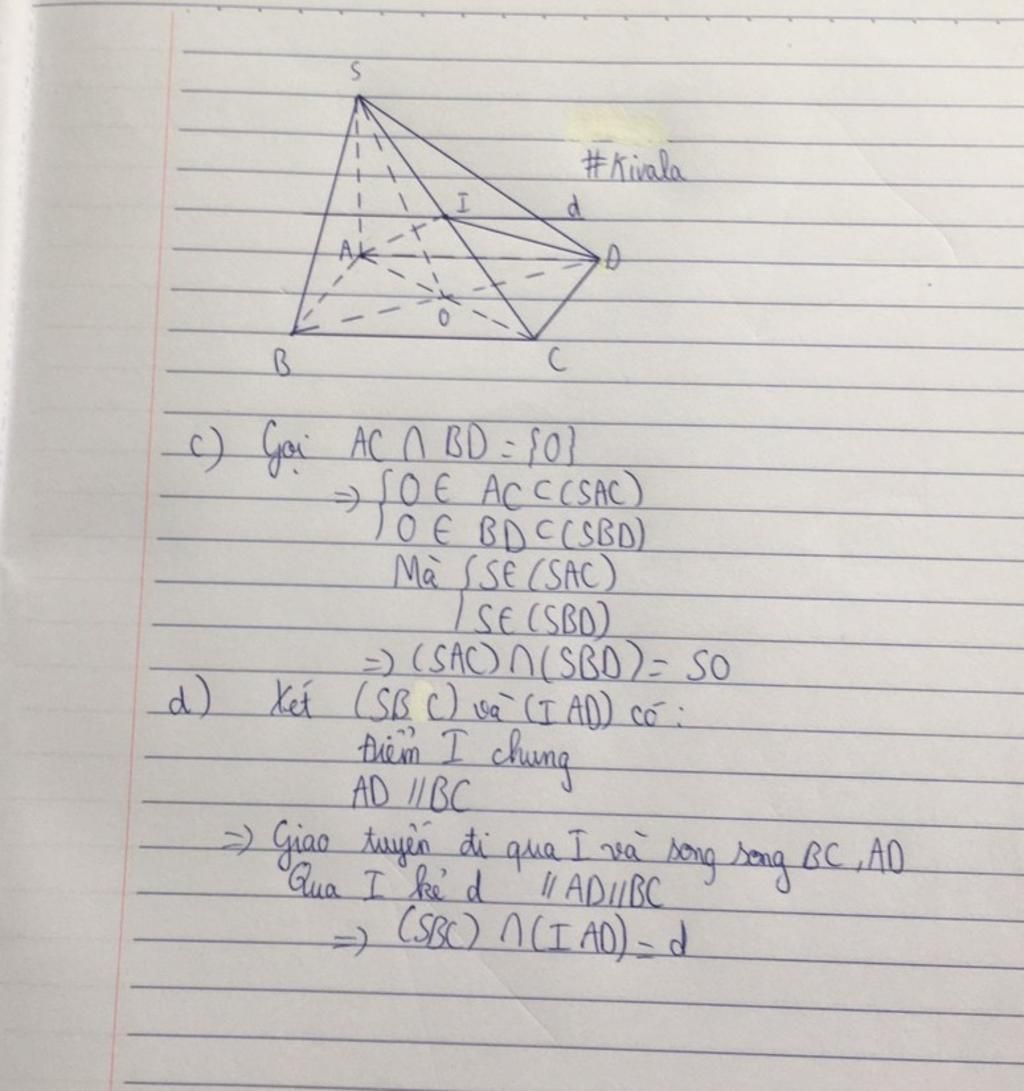 S
#Kivala
I
d
A
D
O
B
C
c) Gọi AC ∩ BD = {O}
=> { O ∈ AC ⊂ (SAC)
O ∈ BD ⊂ (SBD)
Mà { S ∈ (SAC)
S ∈ (SBD)
=> (SAC) ∩ (SBD) = SO
d) Xét (SBC) và (IAD) có:
Điểm I chung
AD // BC
=> Giao tuyến đi qua I và song song BC, AD
Qua I kẻ d // AD // BC
=> (SBC) ∩ (IAD) = d